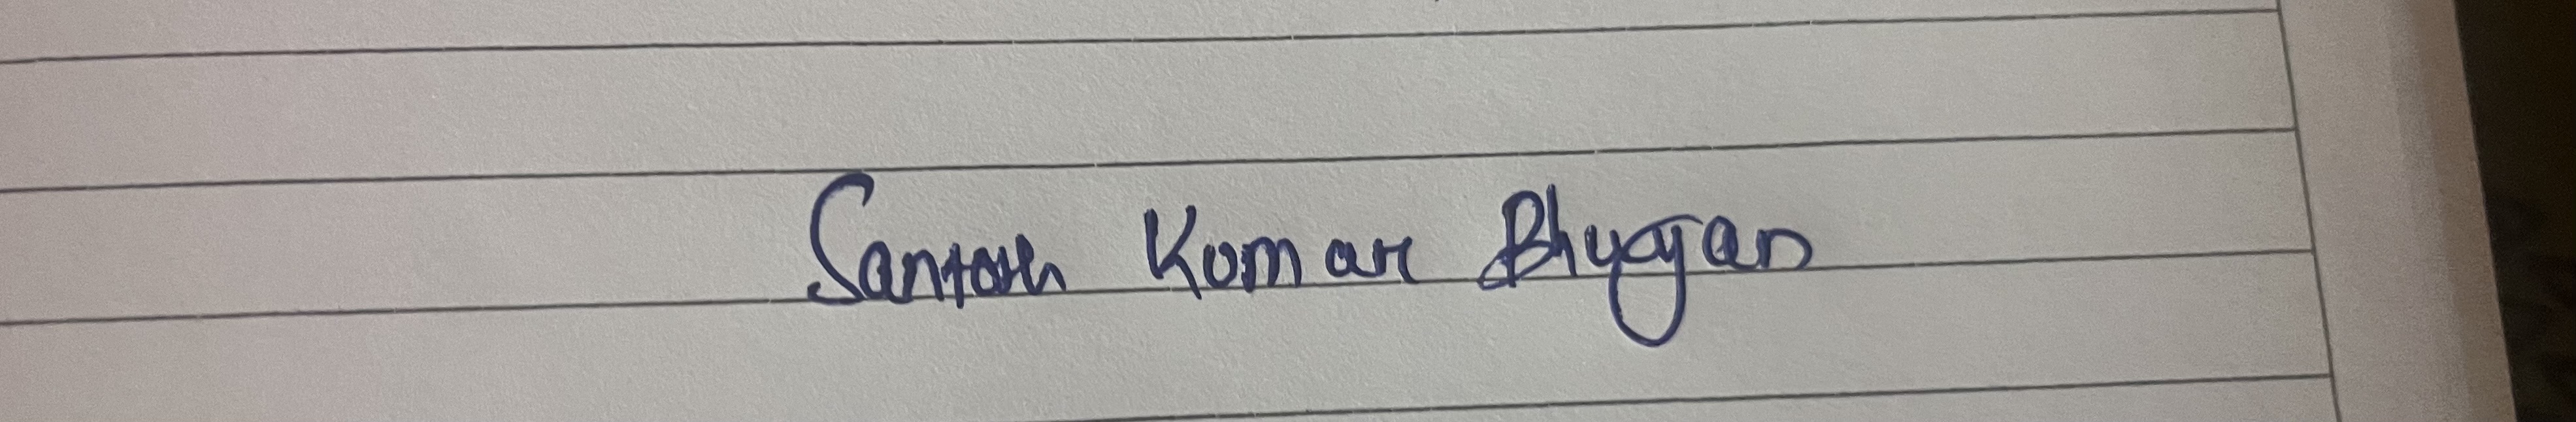 Santosh Kumar Bhuyan